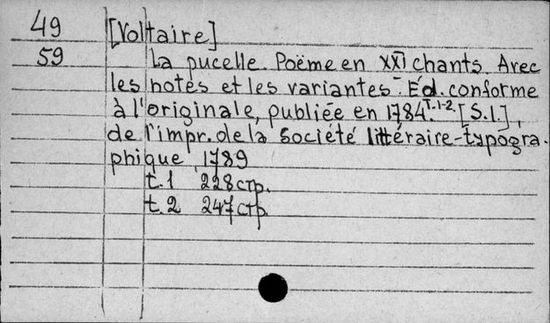 49 [Voltaire]
59 La pucelle. Poëme en XXI chants. Avec
les notes et les variantes - Éd. conforme
à l'originale, publiée en 1784. T.1-2. [S.l.],
de l'impr. de la Société littéraire-typogra-
phique, 1789
t.1 228 стр.
t.2 247 стр.